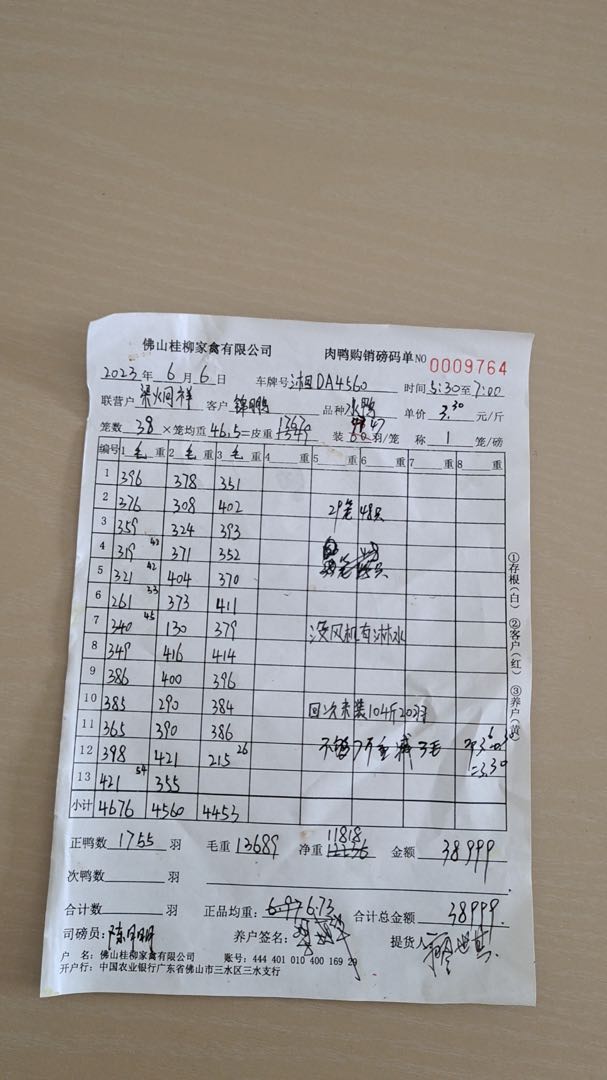 佛山桂柳家禽有限公司 肉鸭购销磅码单 NO 0009764
2023年 6月 6日 车牌号 湘DA4560 时间 5:30 至 7:00
联营户 梁炯祥 客户 锦鹏 品种 水鸭 单价 3.30 元/斤
笼数 38 ×笼均重 46.5 =皮重 装 47 羽/笼 称 1 笼/磅
编号 1 毛 重 2 毛 重 3 毛 重 4 重 5 重 6 重 7 重 8 重
1 396 378 351
2 376 308 402 29笼48只
3 359 324 393
4 319 43 371 352
5 321 42 404 370
6 261 33 373 411
7 340 45 130 379 没风机有淋水
8 349 416 414
9 386 400 396
10 385 290 384 回次未装104斤20羽
11 365 390 386
12 398 421 215 26 不够7斤重减3毛
=3.30
13 421 54 355
小计 4676 4560 4453
正鸭数 1755 羽 毛重 13689 净重 11818 金额 38999
次鸭数 羽
合计数 羽 正品均重: 6.97 6.73 合计总金额 38999
司磅员: 养户签名: 提货人
户 名: 佛山桂柳家禽有限公司 账号: 444 401 010 400 169 29
开户行: 中国农业银行广东省佛山市三水区三水支行
①存根(白) ②客户(红) ③养户(黄)